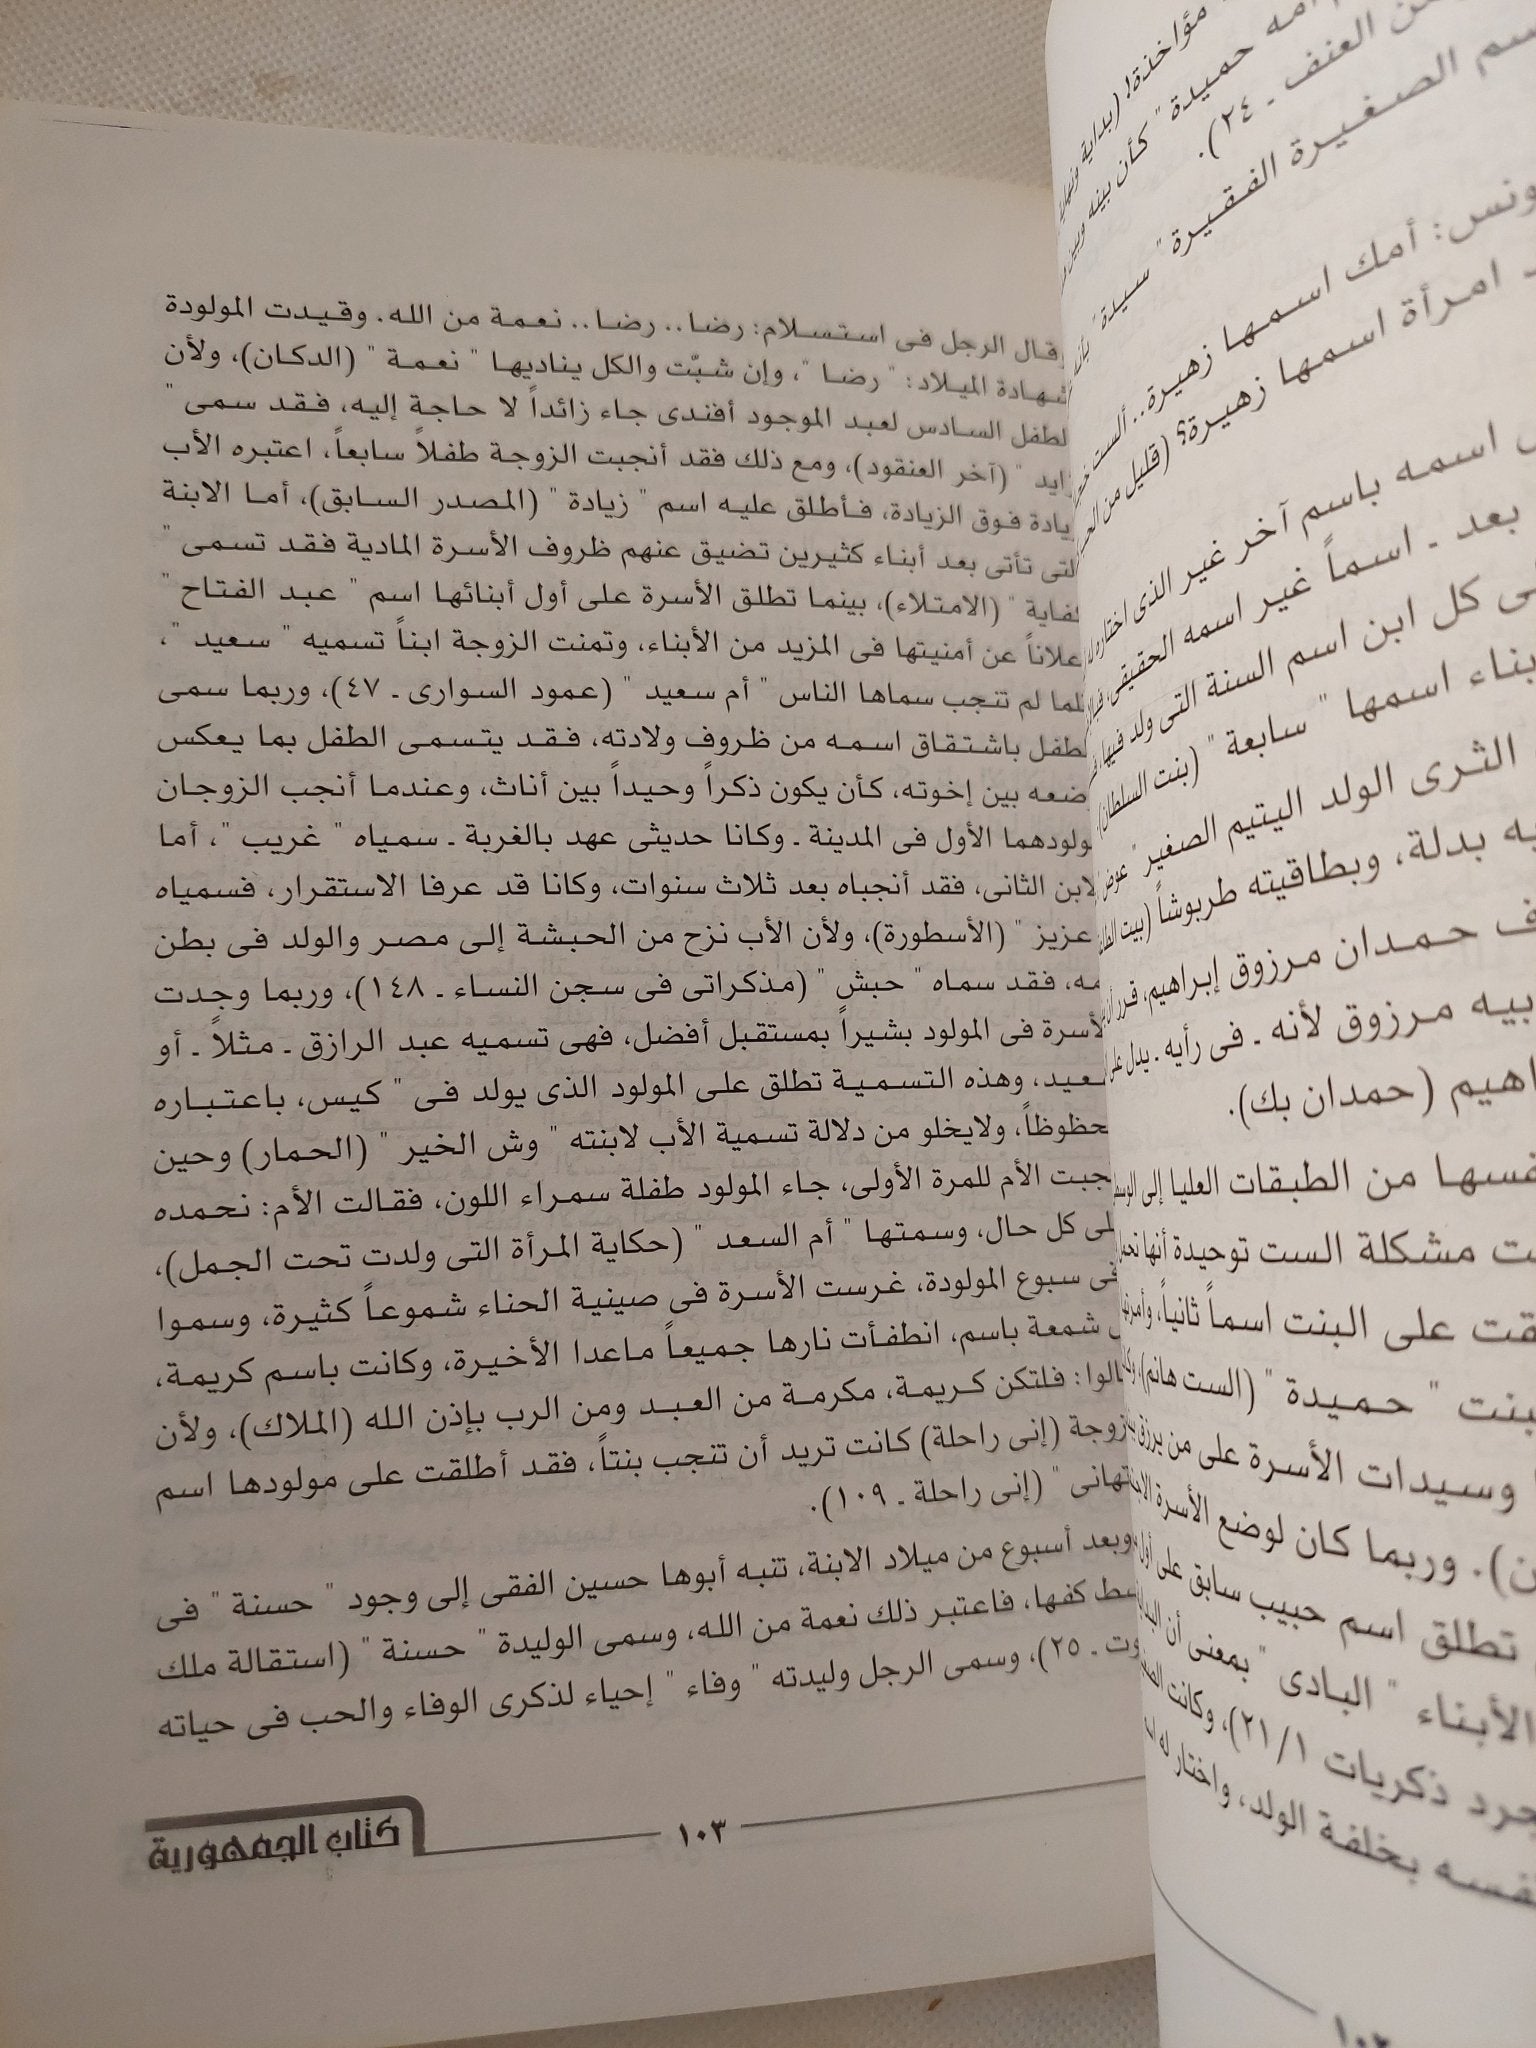 مؤاخذة! (بداية ونهاية
أمه حميدة " كأن بينه وبين
العنف ـ ٢٤).
الصغيرة الفقيرة " سيدة "
ونس: أمك اسمها زهيرة.. ألست
امرأة اسمها زهيرة؟ (قليل من
اسمه باسم آخر غير الذى اختاره
بعد ـ اسماً غير اسمه الحقيقى،
كل ابن اسم السنة التى ولد فيها،
اسمها " سابعة " (بنت السلطان)
الثرى الولد اليتيم الصغير " عوض
بدلة، وبطاقيته طربوشاً (بيت
حمدان مرزوق إبراهيم، قرر أن
مرزوق لأنه ـ فى رأيه ـ يدل على
(حمدان بك).
من الطبقات العليا إلى
مشكلة الست توحيدة أنها
على البنت اسماً ثانياً، وأمرتها
" حميدة " (الست هانم)،
وسيدات الأسرة على من يرزق
وربما كان لوضع الأسرة
تطلق اسم حبيب سابق على أول
الأبناء " البادى " بمعنى أن
ذكريات ٢١/١)، وكانت
بخلفة الولد، واختار له
١٠٢
قال الرجل فى استسلام: رضا.. رضا.. نعمة من الله. وقيدت المولودة
شهادة الميلاد: " رضا "، وإن شبّت والكل يناديها " نعمة " (الدكان)، ولأن
لطفل السادس لعبد الموجود أفندى جاء زائداً لا حاجة إليه، فقد سمى "
زايد " (آخر العنقود)، ومع ذلك فقد أنجبت الزوجة طفلاً سابعاً، اعتبره الأب
يادة فوق الزيادة، فأطلق عليه اسم " زيادة " (المصدر السابق)، أما الابنة
لتى تأتى بعد أبناء كثيرين تضيق عنهم ظروف الأسرة المادية فقد تسمى "
كفاية " (الامتلاء)، بينما تطلق الأسرة على أول أبنائها اسم " عبد الفتاح "
علاناً عن أمنيتها فى المزيد من الأبناء، وتمنت الزوجة ابناً تسميه " سعيد "،
لما لم تنجب سماها الناس " أم سعيد " (عمود السوارى ـ ٤٧)، وربما سمى
لطفل باشتقاق اسمه من ظروف ولادته، فقد يتسمى الطفل بما يعكس
ضعه بين إخوته، كأن يكون ذكراً وحيداً بين أناث، وعندما أنجب الزوجان
ولودهما الأول فى المدينة ـ وكانا حديثى عهد بالغربة ـ سمياه " غريب "، أما
لابن الثانى، فقد أنجباه بعد ثلاث سنوات، وكانا قد عرفا الاستقرار، فسمياه
عزيز " (الأسطورة)، ولأن الأب نزح من الحبشة إلى مصر والولد فى بطن
مه، فقد سماه " حبش " (مذكراتى فى سجن النساء ـ ١٤٨)، وربما وجدت
لأسرة فى المولود بشيراً بمستقبل أفضل، فهى تسميه عبد الرازق ـ مثلاً ـ أو
عيد، وهذه التسمية تطلق على المولود الذى يولد فى " كيس، باعتباره
حظوظاً، ولايخلو من دلالة تسمية الأب لابنته " وش الخير " (الحمار) وحين
جبت الأم للمرة الأولى، جاء المولود طفلة سمراء اللون، فقالت الأم: نحمده
لى كل حال، وسمتها " أم السعد " (حكاية المرأة التى ولدت تحت الجمل)،
فى سبوع المولودة، غرست الأسرة فى صينية الحناء شموعاً كثيرة، وسموا
شمعة باسم، انطفأت نارها جميعاً ماعدا الأخيرة، وكانت باسم كريمة،
الوا: فلتكن كريمة، مكرمة من العبد ومن الرب بإذن الله (الملاك)، ولأن
زوجة (إنى راحلة) كانت تريد أن تنجب بنتاً، فقد أطلقت على مولودها اسم
تهانى " (إنى راحلة ـ ١٠٩).
وبعد أسبوع من ميلاد الابنة، تنبه أبوها حسين الفقى إلى وجود " حسنة " فى
سط كفها، فاعتبر ذلك نعمة من الله، وسمى الوليدة " حسنة " (استقالة ملك
وت ـ ٢٥)، وسمى الرجل وليدته " وفاء " إحياء لذكرى الوفاء والحب فى حياته
١٠٣
كتاب الجمهورية